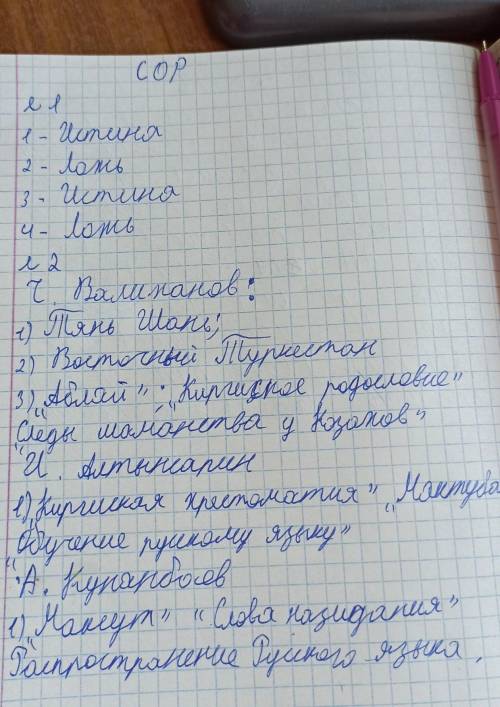 СОР
л 1
1 - Истина
2 - Ложь
3 - Истина
4 - Ложь
л 2
Ч. Валиханов:
1) Тянь Шань;
2) Восточный Туркестан
3) „Аблай"; „Киргизское родословие"
„Следы шаманства у Казахов"
И. Алтынсарин
1) „Киргиская хрестоматия" „Мактуба
„Обучение рускому языку"
А. Кунанбаев
1) „Максут" „Слова назидания"
Распространение Руского языка.